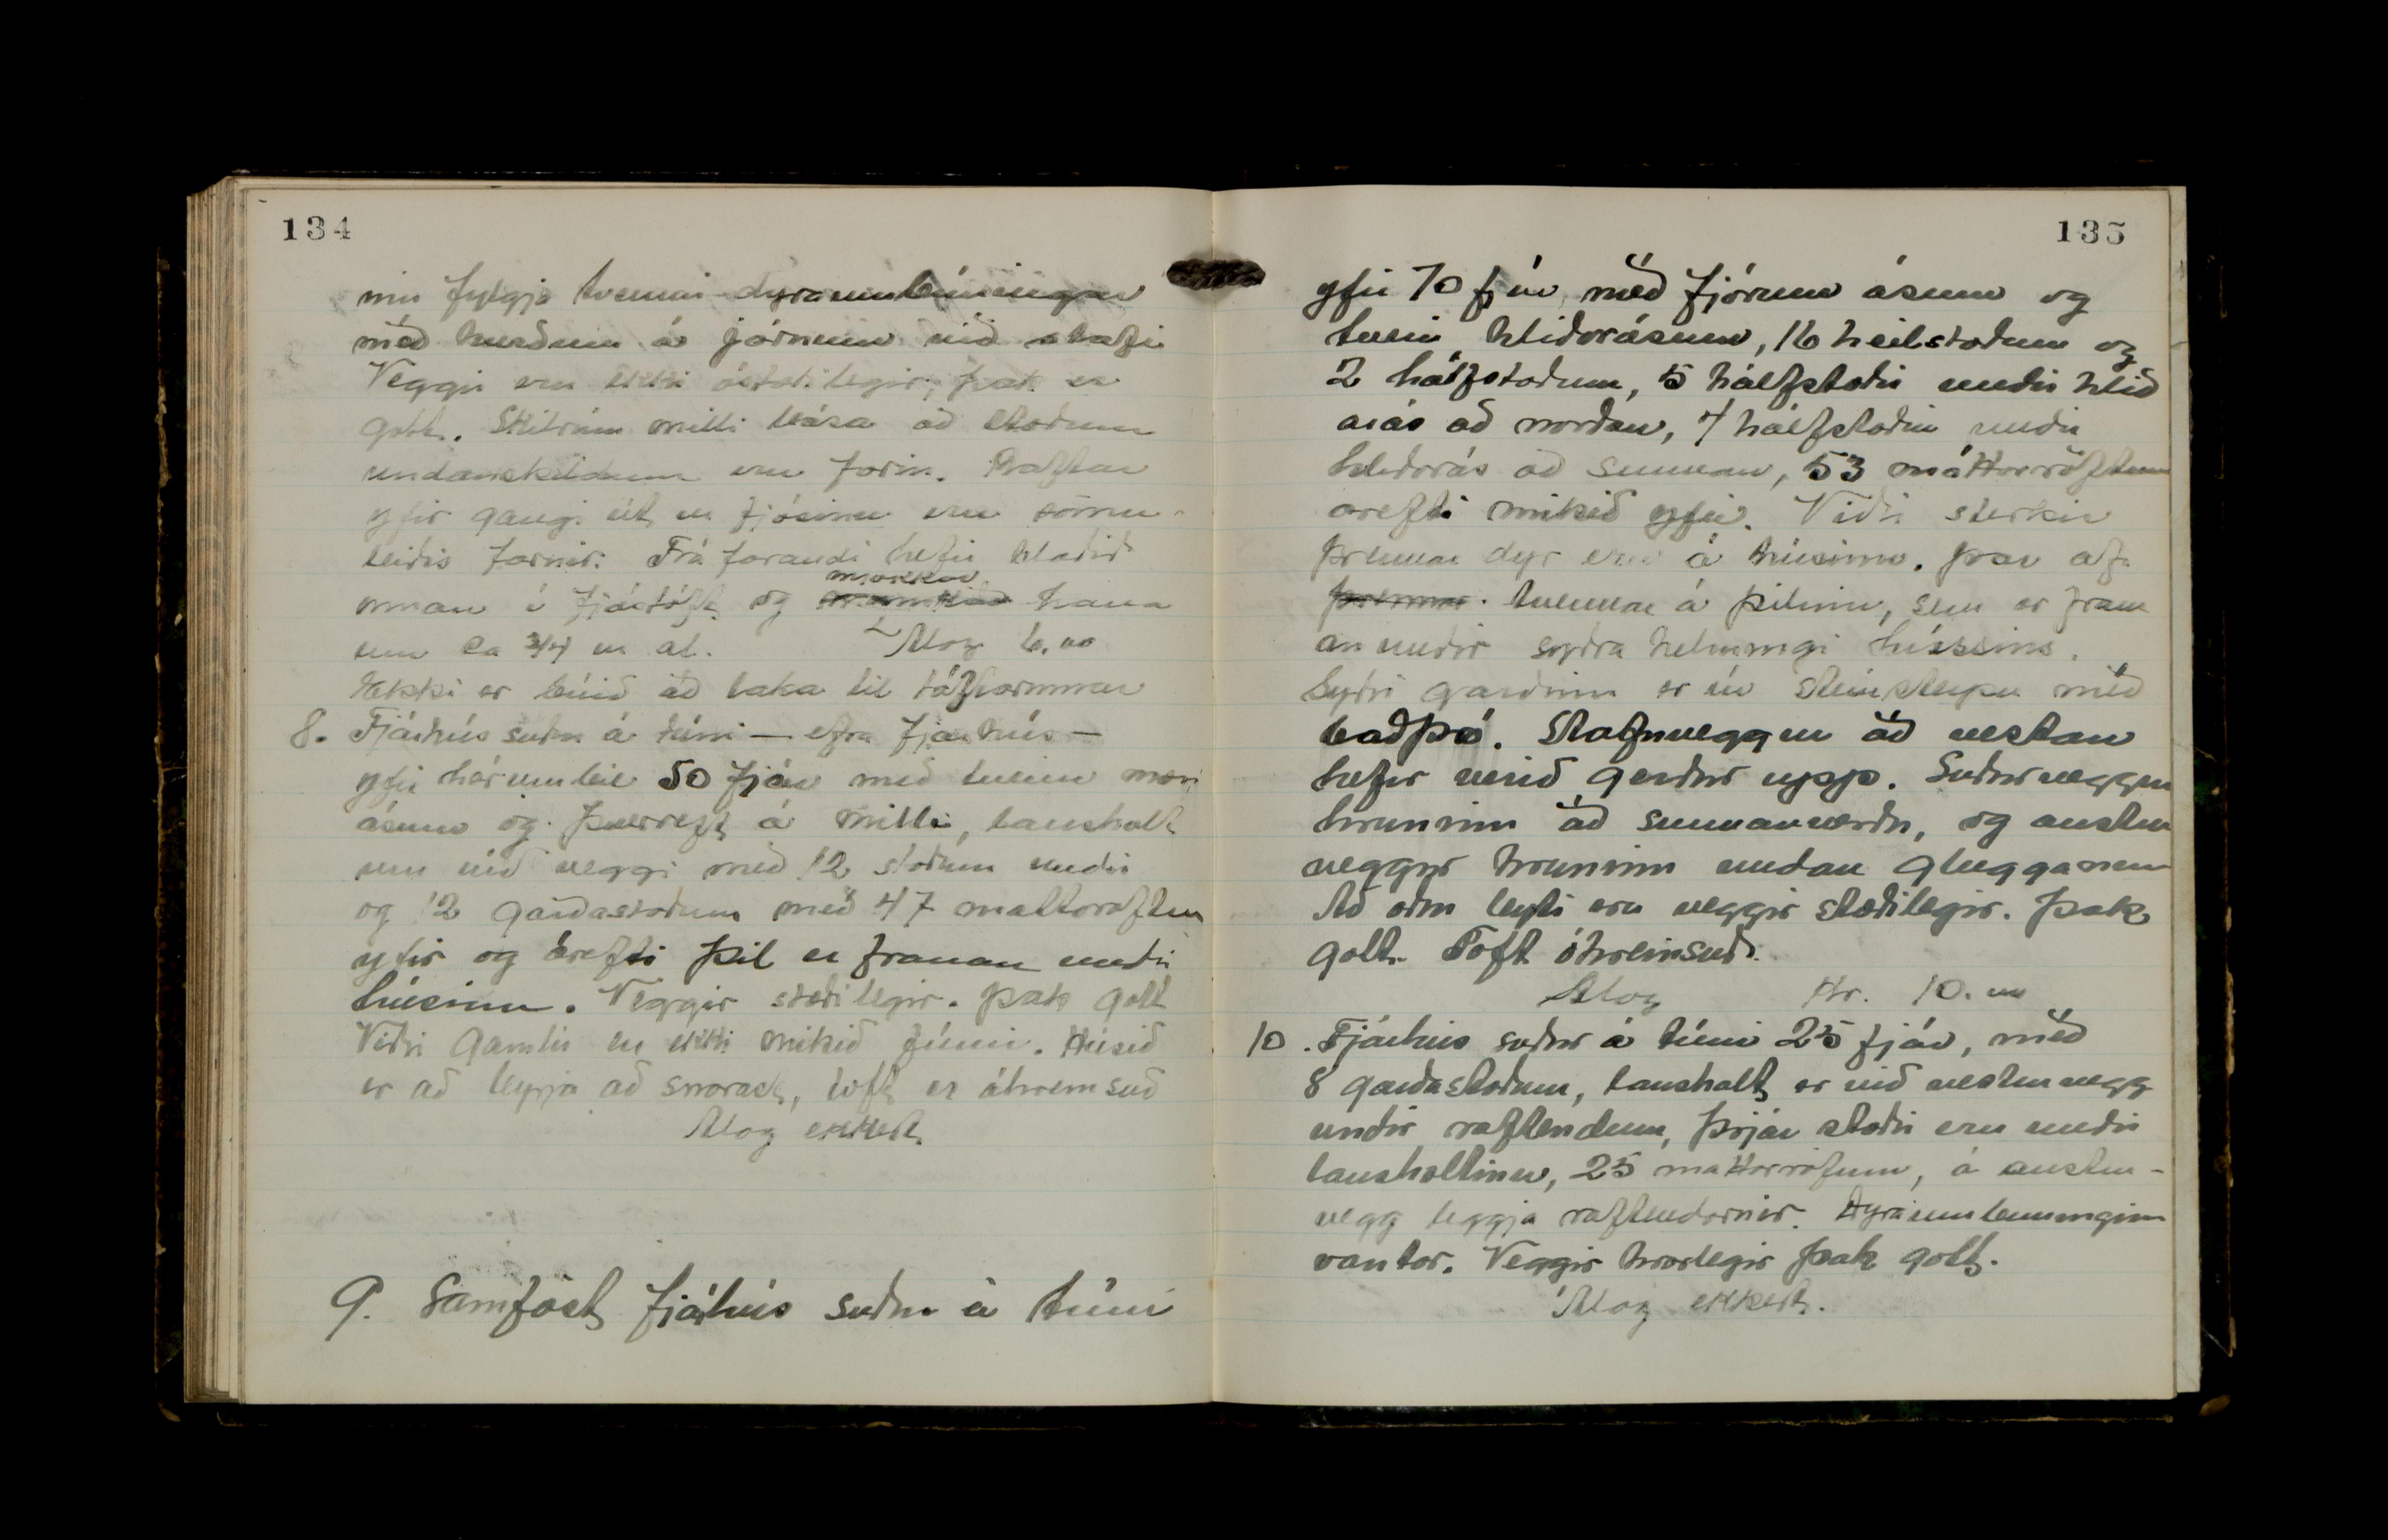 134
inu fylgja tvennar dyraumbúningar
með hurðum á járnum við stafn
Veggir eru ekki óstæðilegir; þak er
gott. Skilrúm milli bása að stoðum
undanskildum eru farin. Raftar
yfir gangi út úr fjósinu eru sömu-
leiðis farnir. Fráfarandi hefir hlaðið
innan í fjóstóft og mjókkað hana
um ca 3/4 m al. Álag 6.00
Ekki er búið að taka til tóftarinnar
8. Fjárhús suður á túni — efra fjárhús —
yfir hér um bil 50 fjár með tveim mæni
ásum og þverreft á milli, lausholt
um við veggi með 12 stoðum undir
og 12 garðastoðum með 47 máttarröftum
yfir og árefti þil er framan undir
húsinu. Veggir stæðilegir. Þak gott
Viðir gamlir en ekki mikið fúnir. Húsið
er að byrja að snarast, tóft er óhreinsuð
Álag ekkert.
9. Samfast fjárhús suður á túni
135
yfir 70 fjár, með fjórum ásum og
tveim hliðarásum, 16 heilstoðum og
2 hálfstoðum, 5 hálfstoðir undir hlið
arás að norðan, 7 hálfstoðir undir
hliðarás að sunnan, 53 máttarröftum
árefti mikið yfir. Viðir sterkir
þrennar dyr eru á húsinu, þar af
þrennar tvennar á þilinu, sem er fram
an undir syðra helmingi hússins.
Syðri garðinn er úr steinsteypu með
baðþró. Stafnveggur að vestan
hefir verið gerður upp. Suðurveggur
hruninn að sunnanverðu, og austur
veggur hruninn undan glugganum
Að öðru leyti eru veggir stæðilegir. Þak
gott. Tóft óhreinsuð.
Álag Kr. 10.00
10. Fjárhús suður á túni 25 fjár, með
8 garðastoðum, lausholt er við vesturvegg
undir raftendum, þrjár stoðir eru undir
lausholtinu, 25 máttarröftum, á austur-
vegg liggja raftendarnir. Dyraumbúninginn
vantar. Veggir hrörlegir þak gott.
Álag ekkert.